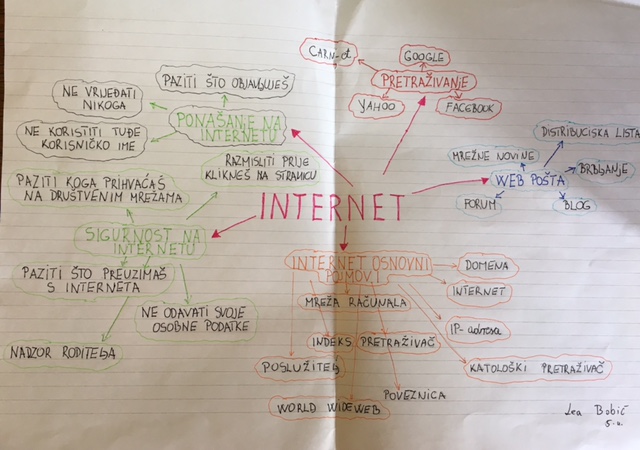 CARN-et
GOOGLE
PRETRAŽIVANJE
YAHOO
FACEBOOK
PAZITI ŠTO OBJAVLJUJEŠ
NE VRIJEĐATI
NIKOGA
PONAŠANJE NA
INTERNETU
NE KORISTITI TUĐE
KORISNIČKO IME
DISTRIBUCISKA LISTA
MREŽNE NOVINE
BRBLJANJE
WEB POŠTA
FORUM
BLOG
RAZMISLITI PRIJE
KLIKNEŠ NA STRANICU
PAZITI KOGA PRIHVAĆAŠ
NA DRUŠTVENIM MREŽAMA
INTERNET
SIGURNOST NA
INTERNETU
PAZITI ŠTO PREUZIMAŠ
S INTERNETA
NE ODAVATI SVOJE
OSOBNE PODATKE
NADZOR RODITELJA
INTERNET OSNOVNI
POJMOVI
DOMENA
INTERNET
MREŽA RAČUNALA
IP-adresa
INDEKS
PRETRAŽIVAČ
POSLUŽITELJ
KATOLOŠKI PRETRAŽIVAČ
POVEZNICA
WORLD WIDE WEB
Lea Bobić
5.